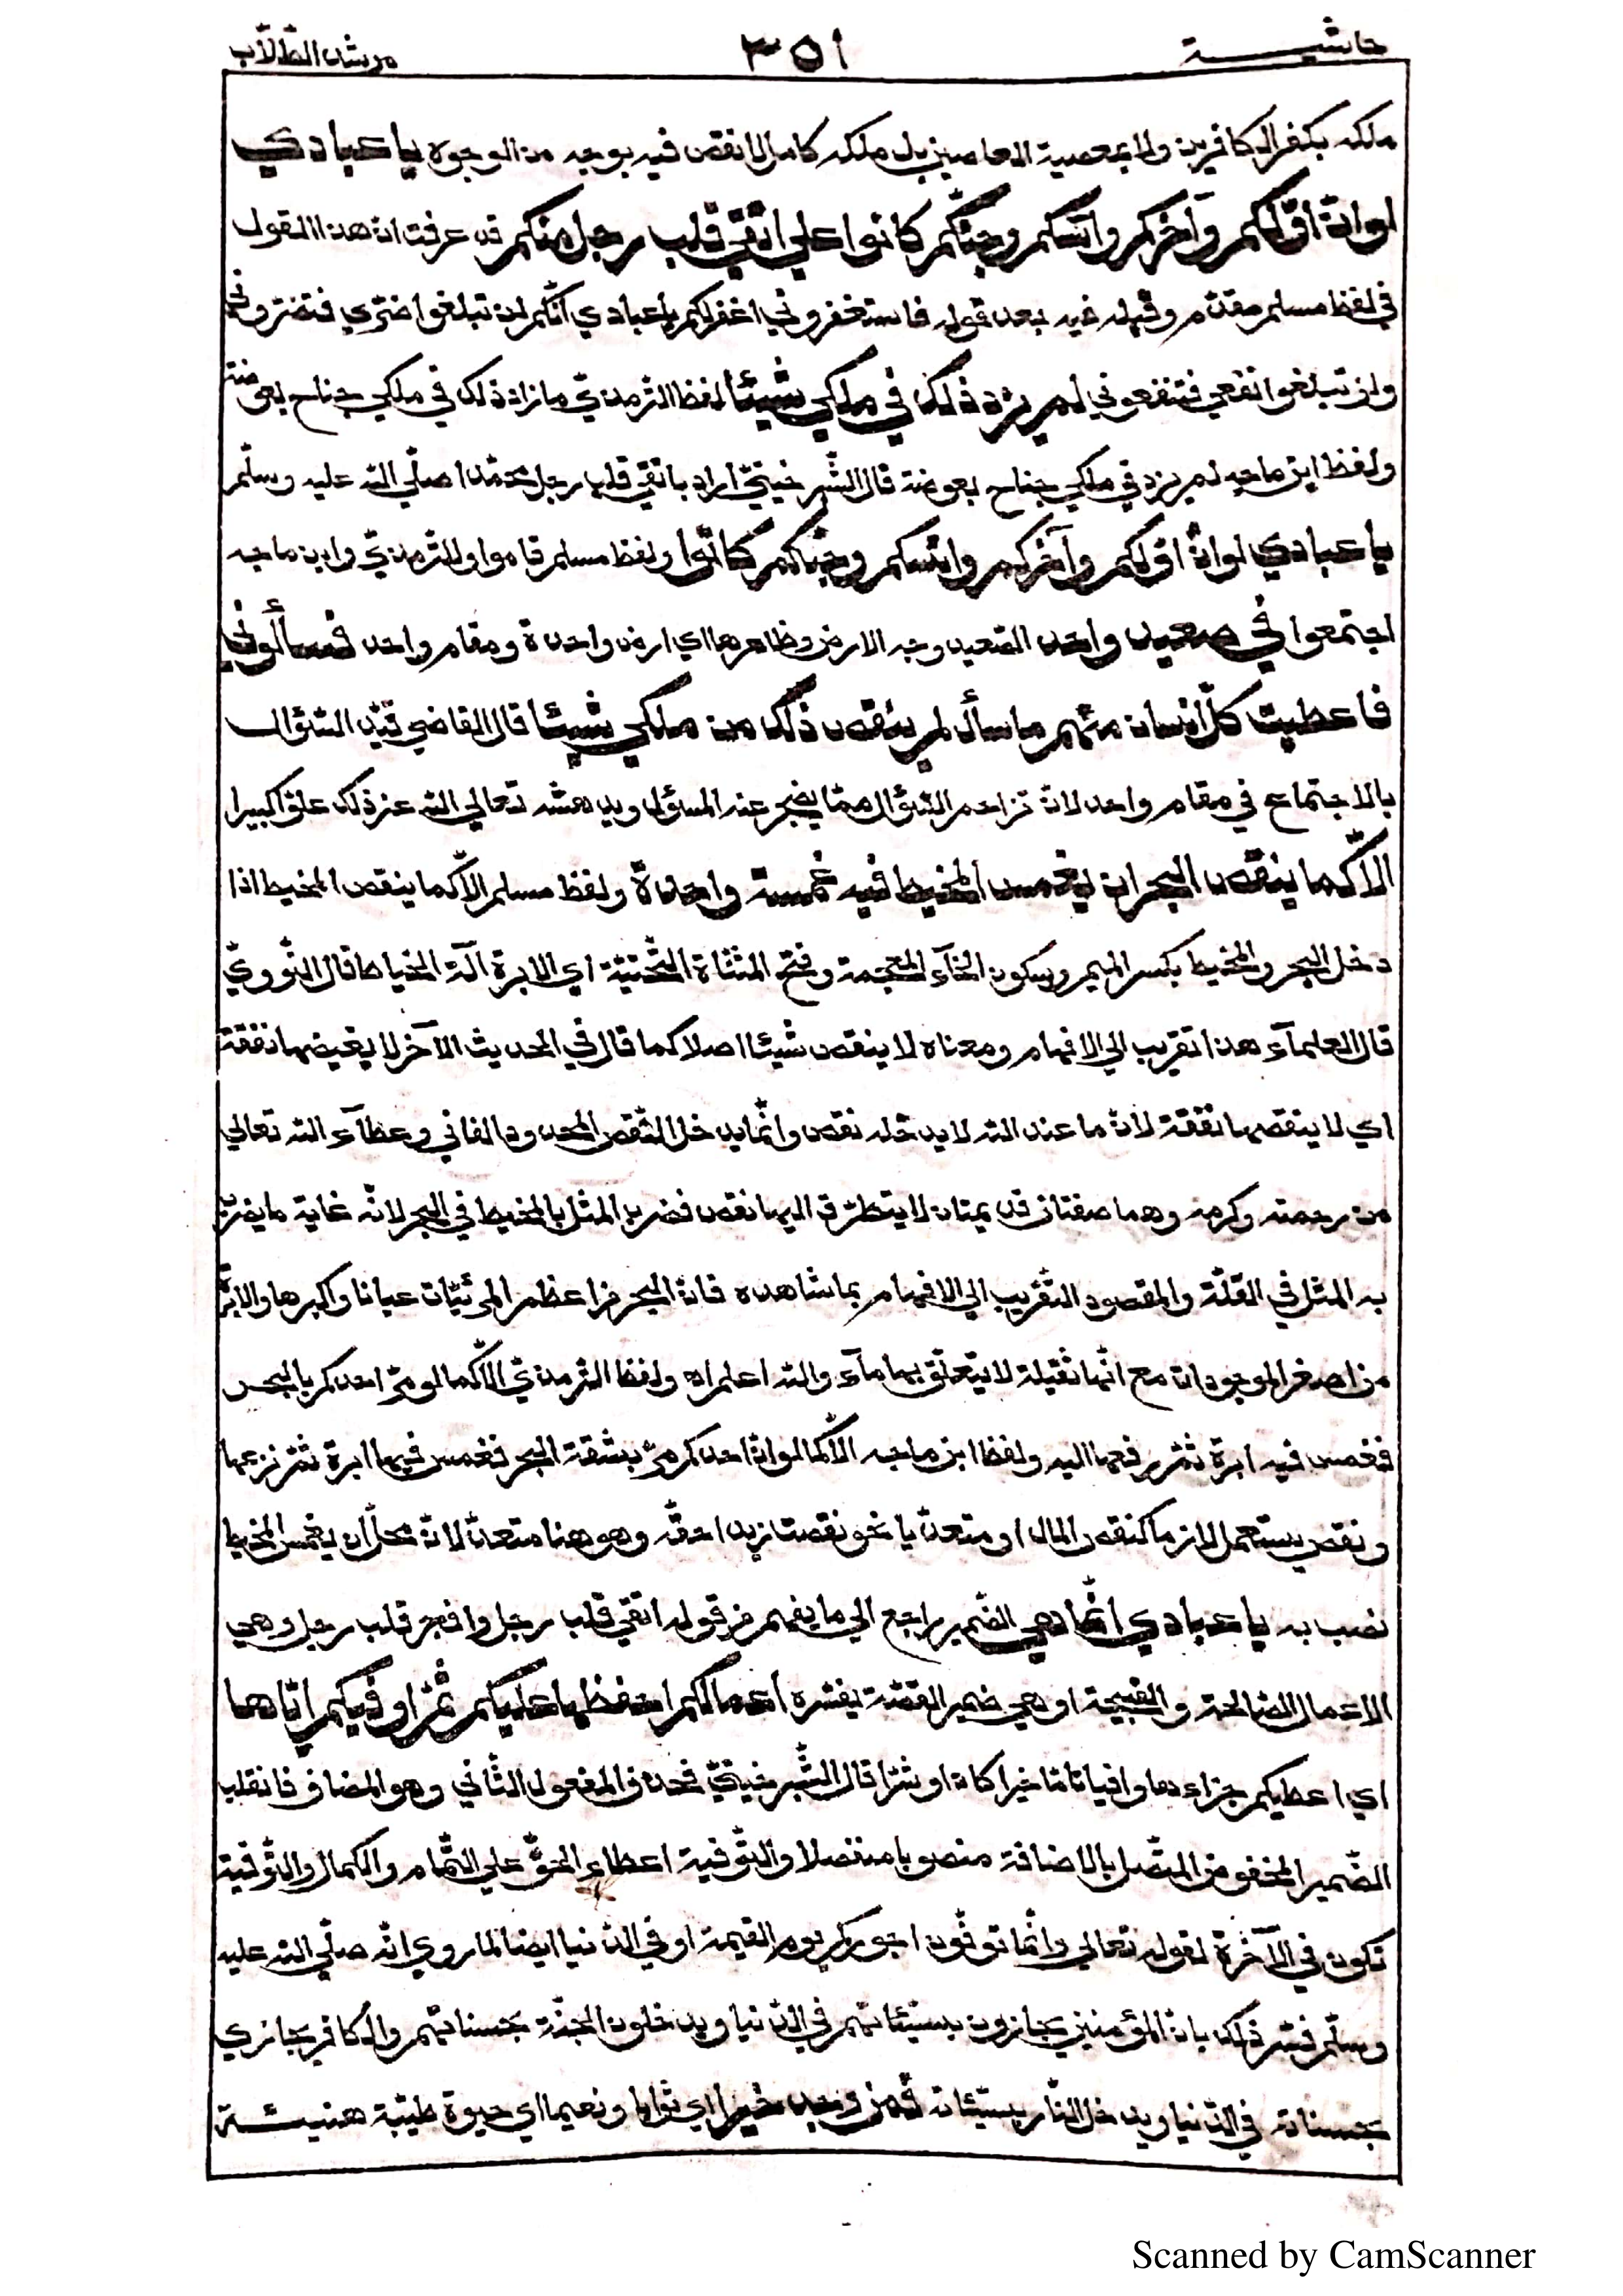 حاشيــــة ٣٥١ مرشد الطّلّاب
ملكه بكفر الكافرين ولا بمعصية العاصين بل ملكه كامل لا نقص فيه بوجه من الوجوه يا عبادي
لو انّ اوّلكم وآخركم وانسكم وجنّكم كانوا علي اتقي قلب رجل منكم قد عرفت ان هذا القول
في لفظ مسلم مقدّم وقبله فيه بعد قوله فاستغفروني اغفر لكم يا عبادي انّكم لن تبلغوا ضرّي فتضرّوني
ولن تبلغوا نفعي فتنفعوني لم يزد ذلك في ملكي شيئا لفظ التّرمذيّ ما زاد ذلك في ملكي جناح بعوضة
ولفظ ابن ماجه لم يزد في ملكي جناح بعوضة قال الشّبرخيتيّ اراد باتقي قلب رجل محمّدا صلّي الله عليه وسلّم
يا عبادي لو انّ اوّلكم وآخركم وانسكم وجنّكم كانوا ولفظ مسلم قاموا وللتّرمذيّ وابن ماجه
اجتمعوا في صعيد واحد الصّعيد وجه الارض وظاهرها اي ارض واحدة ومقام واحد فسألوني
فاعطيت كلّ انسان منهم ما سأل لم ينقص ذلك من ملكي شيئا قال القاضي قيّد السّؤال
بالاجتماع في مقام واحد لانّ تزاحم السّؤال ممّا يضجر عنه المسؤل ويدهشه تعالي الله عن ذلك علوّا كبيرا
الّا كما ينقص البحر ان يغمس المخيط فيه غمسة واحدة ولفظ مسلم الّا كما ينقص المخيط اذا
دخل البحر والمخيط بكسر الميم وسكون الخآء المعجمة وفتح المثنّاة التّحتيّة اي الابرة آلة الخياط قال النّوويّ
قال العلمآء هذا تقريب الي الافهام ومعناه لا ينقص شيئا اصلا كما قال في الحديث الآخر لا يغيضها نفقة
اي لا ينقصها نفقة لانّ ما عند الله لا يدخله نقص وانّما يدخل النّقص المحدود الفاني وعطآء الله تعالي
من رحمته وكرمه وهما صفتان قديمتان لا يتطرّق اليها نقص فضرب المثل بالمخيط في البحر لانّه غاية ما يضرب
به المثل في القلّة والمقصود التّقريب الي الافهام بما شاهده فانّ البحر من اعظم المرئيّات عيانا واكبرها والابرة
من اصغر الموجودات مع انّها ثقيلة لا يتعلّق بها مآء والله اعلم اه ولفظ التّرمذيّ الّا كما لو مرّ احدكم بالبحر
فغمس فيه ابرة ثمّ رفعها اليه ولفظ ابن ماجه الّا كما لو انّ احدكم مرّ بشقة البحر فغمس فيها ابرة ثمّ نزعها
ونقص يستعمل لازما كنقص المال او متعدّيا نحو نقصت زيدا حقّه وهو هنا متعدّ لانّ محلّ ان يغمس المخيط
نصب به يا عبادي انّما هي الضّمير راجع الي ما يفهم من قوله اتقي قلب رجل وافجر قلب رجل وهي
الاعمال الصّالحة والقبيحة او هي ضمير القصّة يفسّره اعمالكم احفظها عليكم ثمّ اوفّيكم ايّاها
اي اعطيكم جزاءها وافيا تامّا خيرا كان او شرّا قال الشّبرخيتيّ فحذف المفعول الثّاني وهو المضاف فانقلب
الضّمير المخفوض المتّصل بالاضافة منصوبا منفصلا والتّوفية اعطاء الحقّ علي التّمام والكمال والتّوفية
تكون في الآخرة لقوله تعالي وانّما توفّون اجوركم يوم القيمة او في الدّنيا ايضا لما روي انّه صلّي الله عليه
وسلّم فسّر ذلك بانّ المؤمنين يجازون بسيّئاتهم في الدّنيا ويدخلون الجنّة بحسناتهم والكافر يجازي
بحسناته في الدّنيا ويدخل النّار بسيّئاته فمن وجد خيرا اي ثوابا ونعيما اي حيوة طيّبة هنيئــــة
Scanned by CamScanner